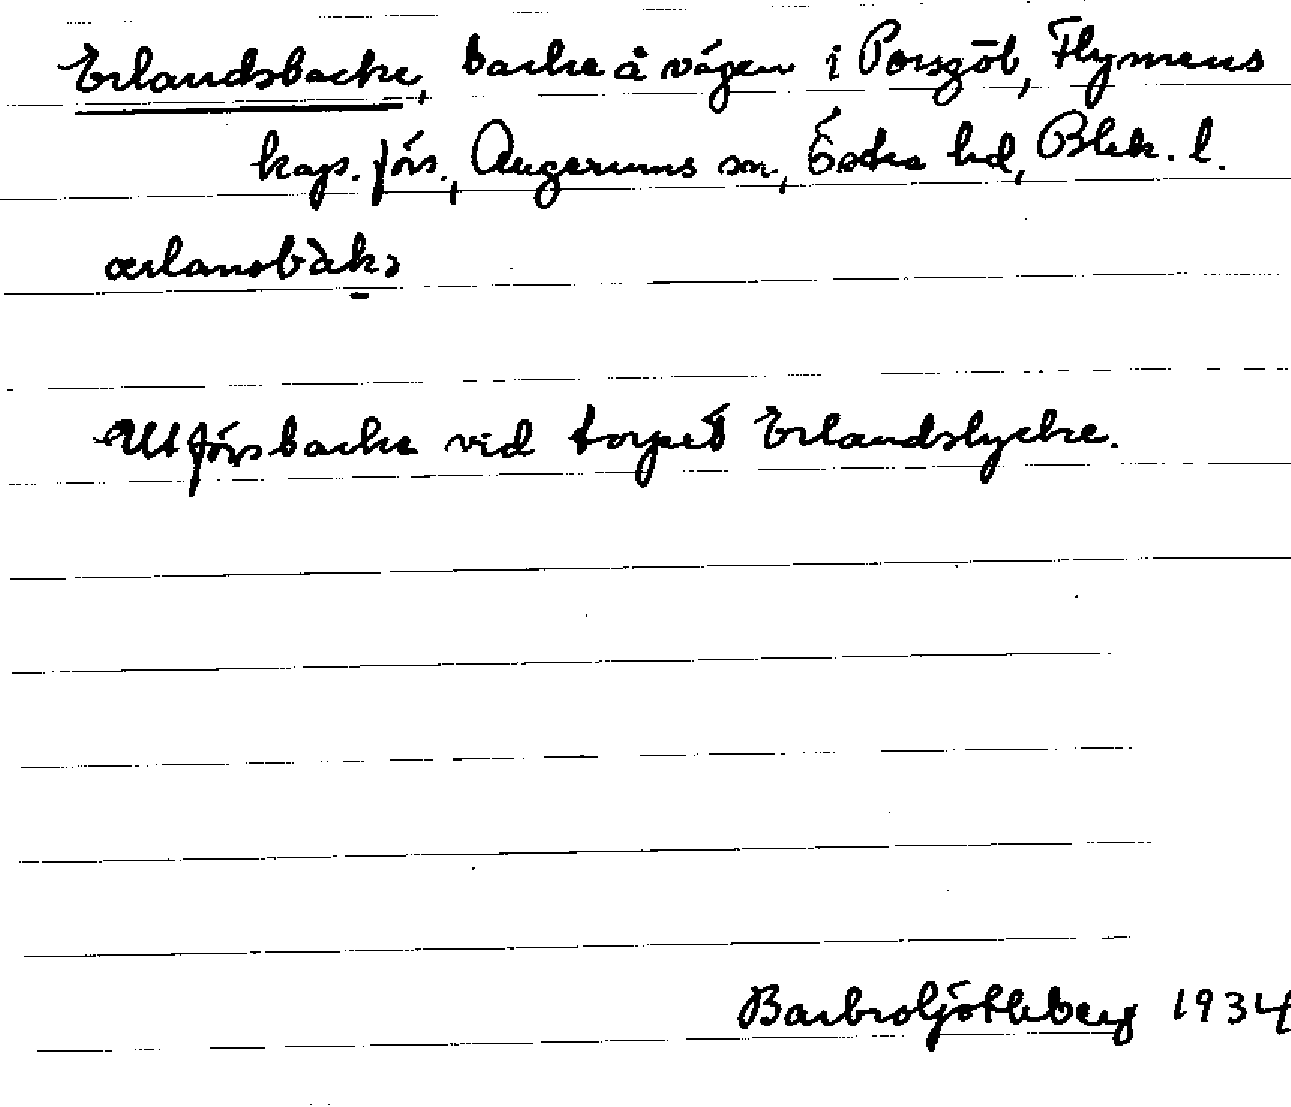 Erlandsbacke, backe å vägen i Porsgöl, Flymens
kap. förs., Augerums sn, Östra hd, Blek. l.
ærlansbàkə
Utförsbacke vid torpet Erlandslycke.
Barbro 1934